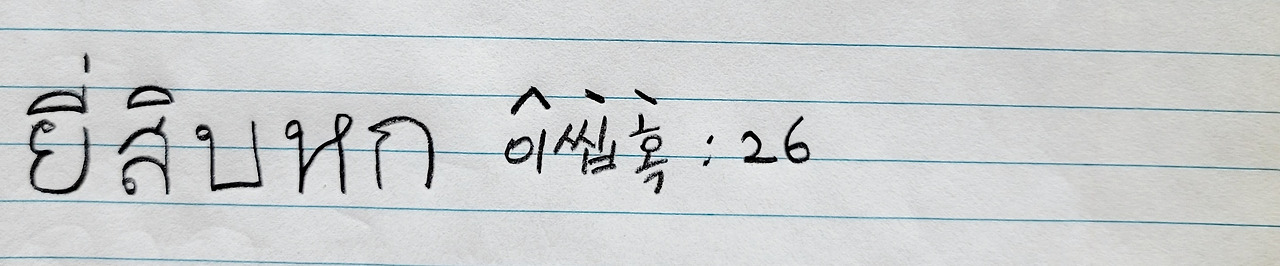 ยี่สิบหก 이씹혹 : 26